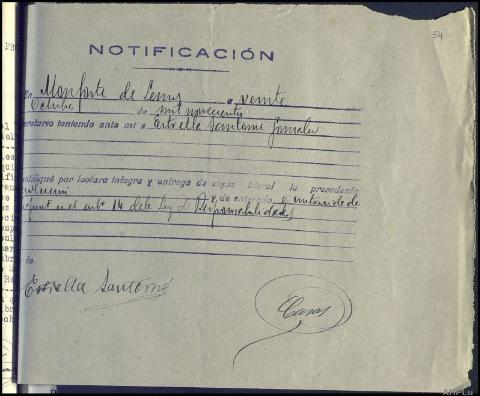 54
NOTIFICACIÓN
En Monforte de Lemos a veinte
Octubre de mil novecientos
secretario teniendo ante mi a Estrella Santomé González
notifiqué por lectura íntegra y entrega de copia literal la precedente
y de enterado y enterada de
en el artº 14 de la Ley de Responsabilidades
Estrella Santomé
Casas
AHPLu